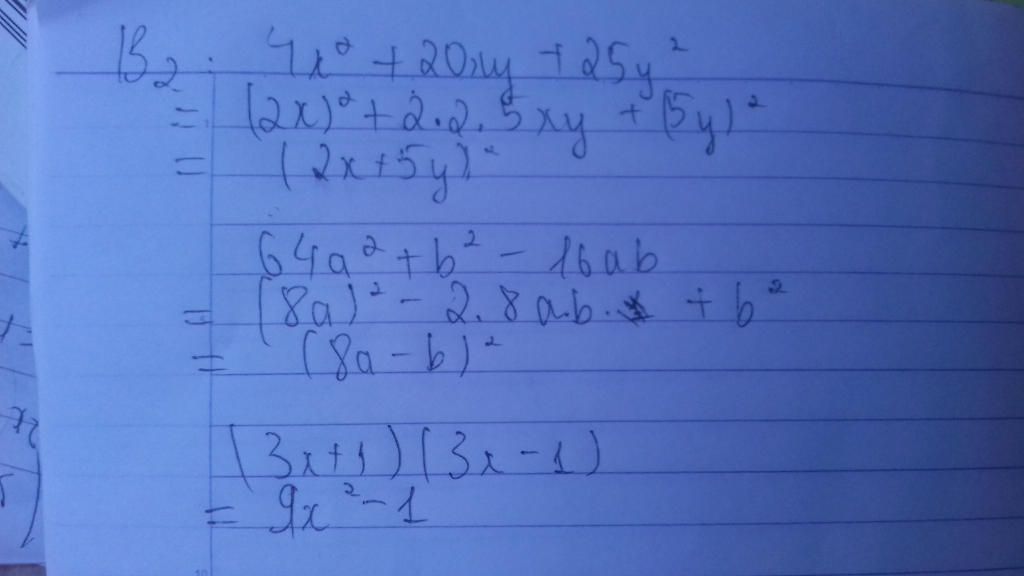 B2: 4x² + 20xy + 25y²
= (2x)² + 2.2.5xy + (5y)²
= (2x+5y)²
64a² + b² - 16ab
= (8a)² - 2.8a.b. + b²
= (8a - b)²
(3x+1)(3x-1)
= 9x² - 1